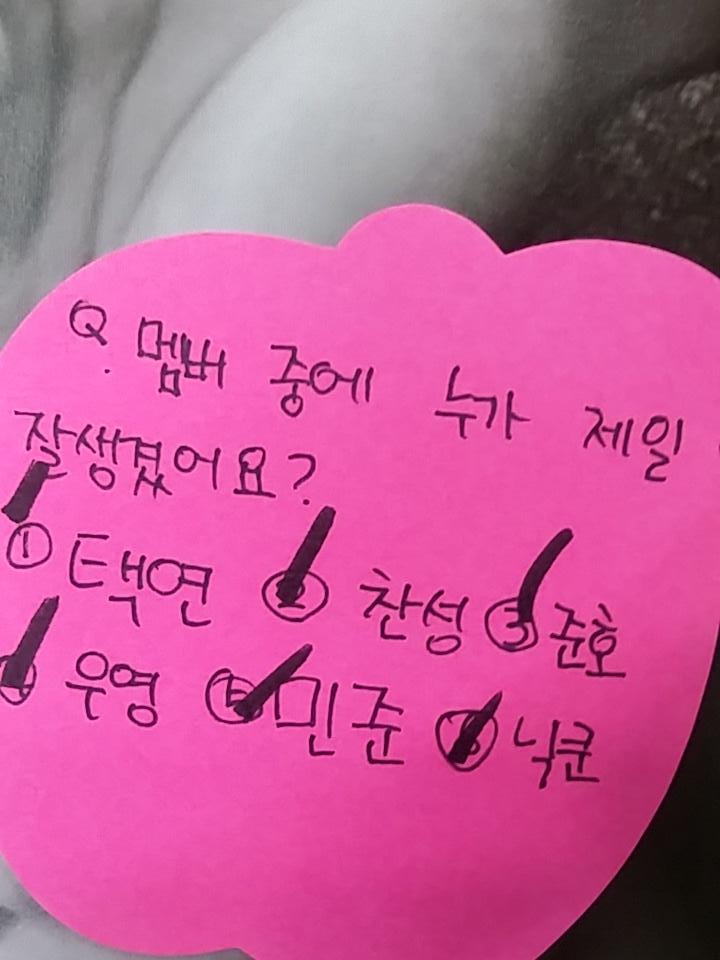 Q. 멤버 중에 누가 제일
잘생겼어요?
① 택연 ② 찬성 ③ 준호
④ 우영 ⑤ 민준 ⑥ 닉쿤